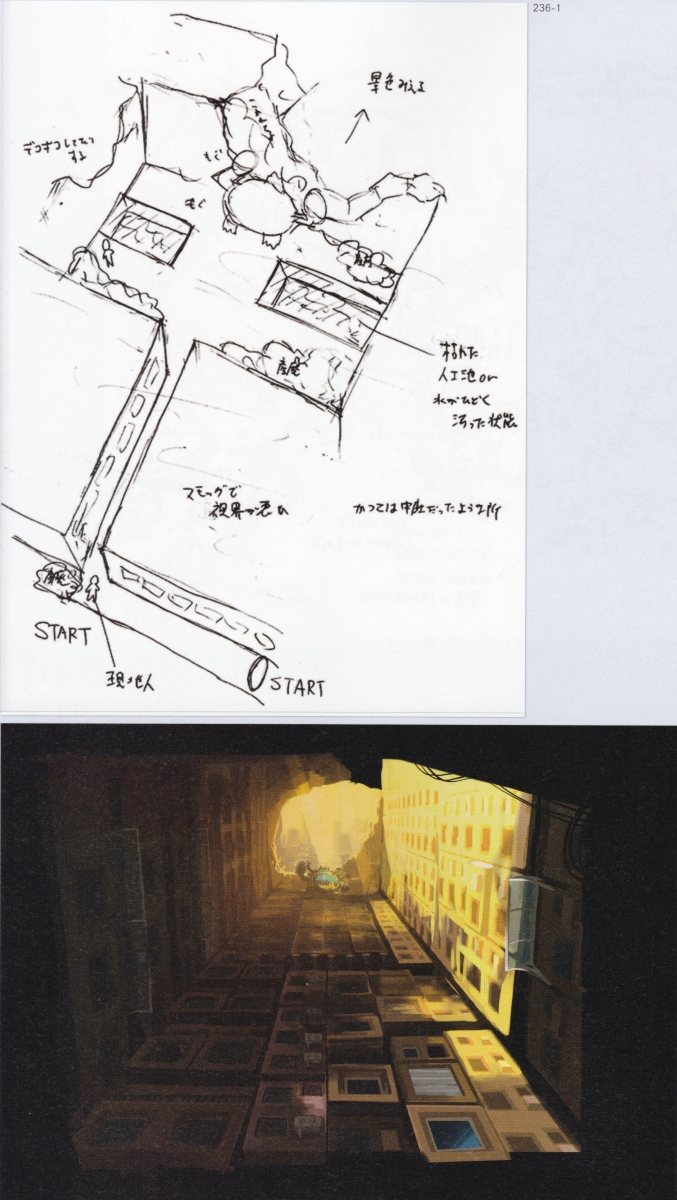 236-1
景色みえる
デコボコしてたり
する
もぐ
もぐ
枯れた
人工池or
水がひどく
汚った状態
スモッグで
視界が悪い
かつては中庭だったような所
START
現地人
START